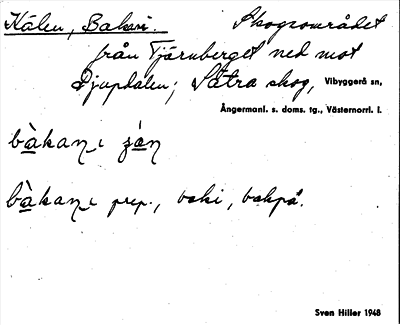 Kälen, Bakani. Skogsområdet
från Tjärnberget ned mot
Djupdalen; Sätra skog, Vibyggerå sn,
Ångermanl. s. doms. tg., Västernorrl. l.
bàkan ι
bàkan ι prep., baki, bakpå.
Sven Hiller 1948